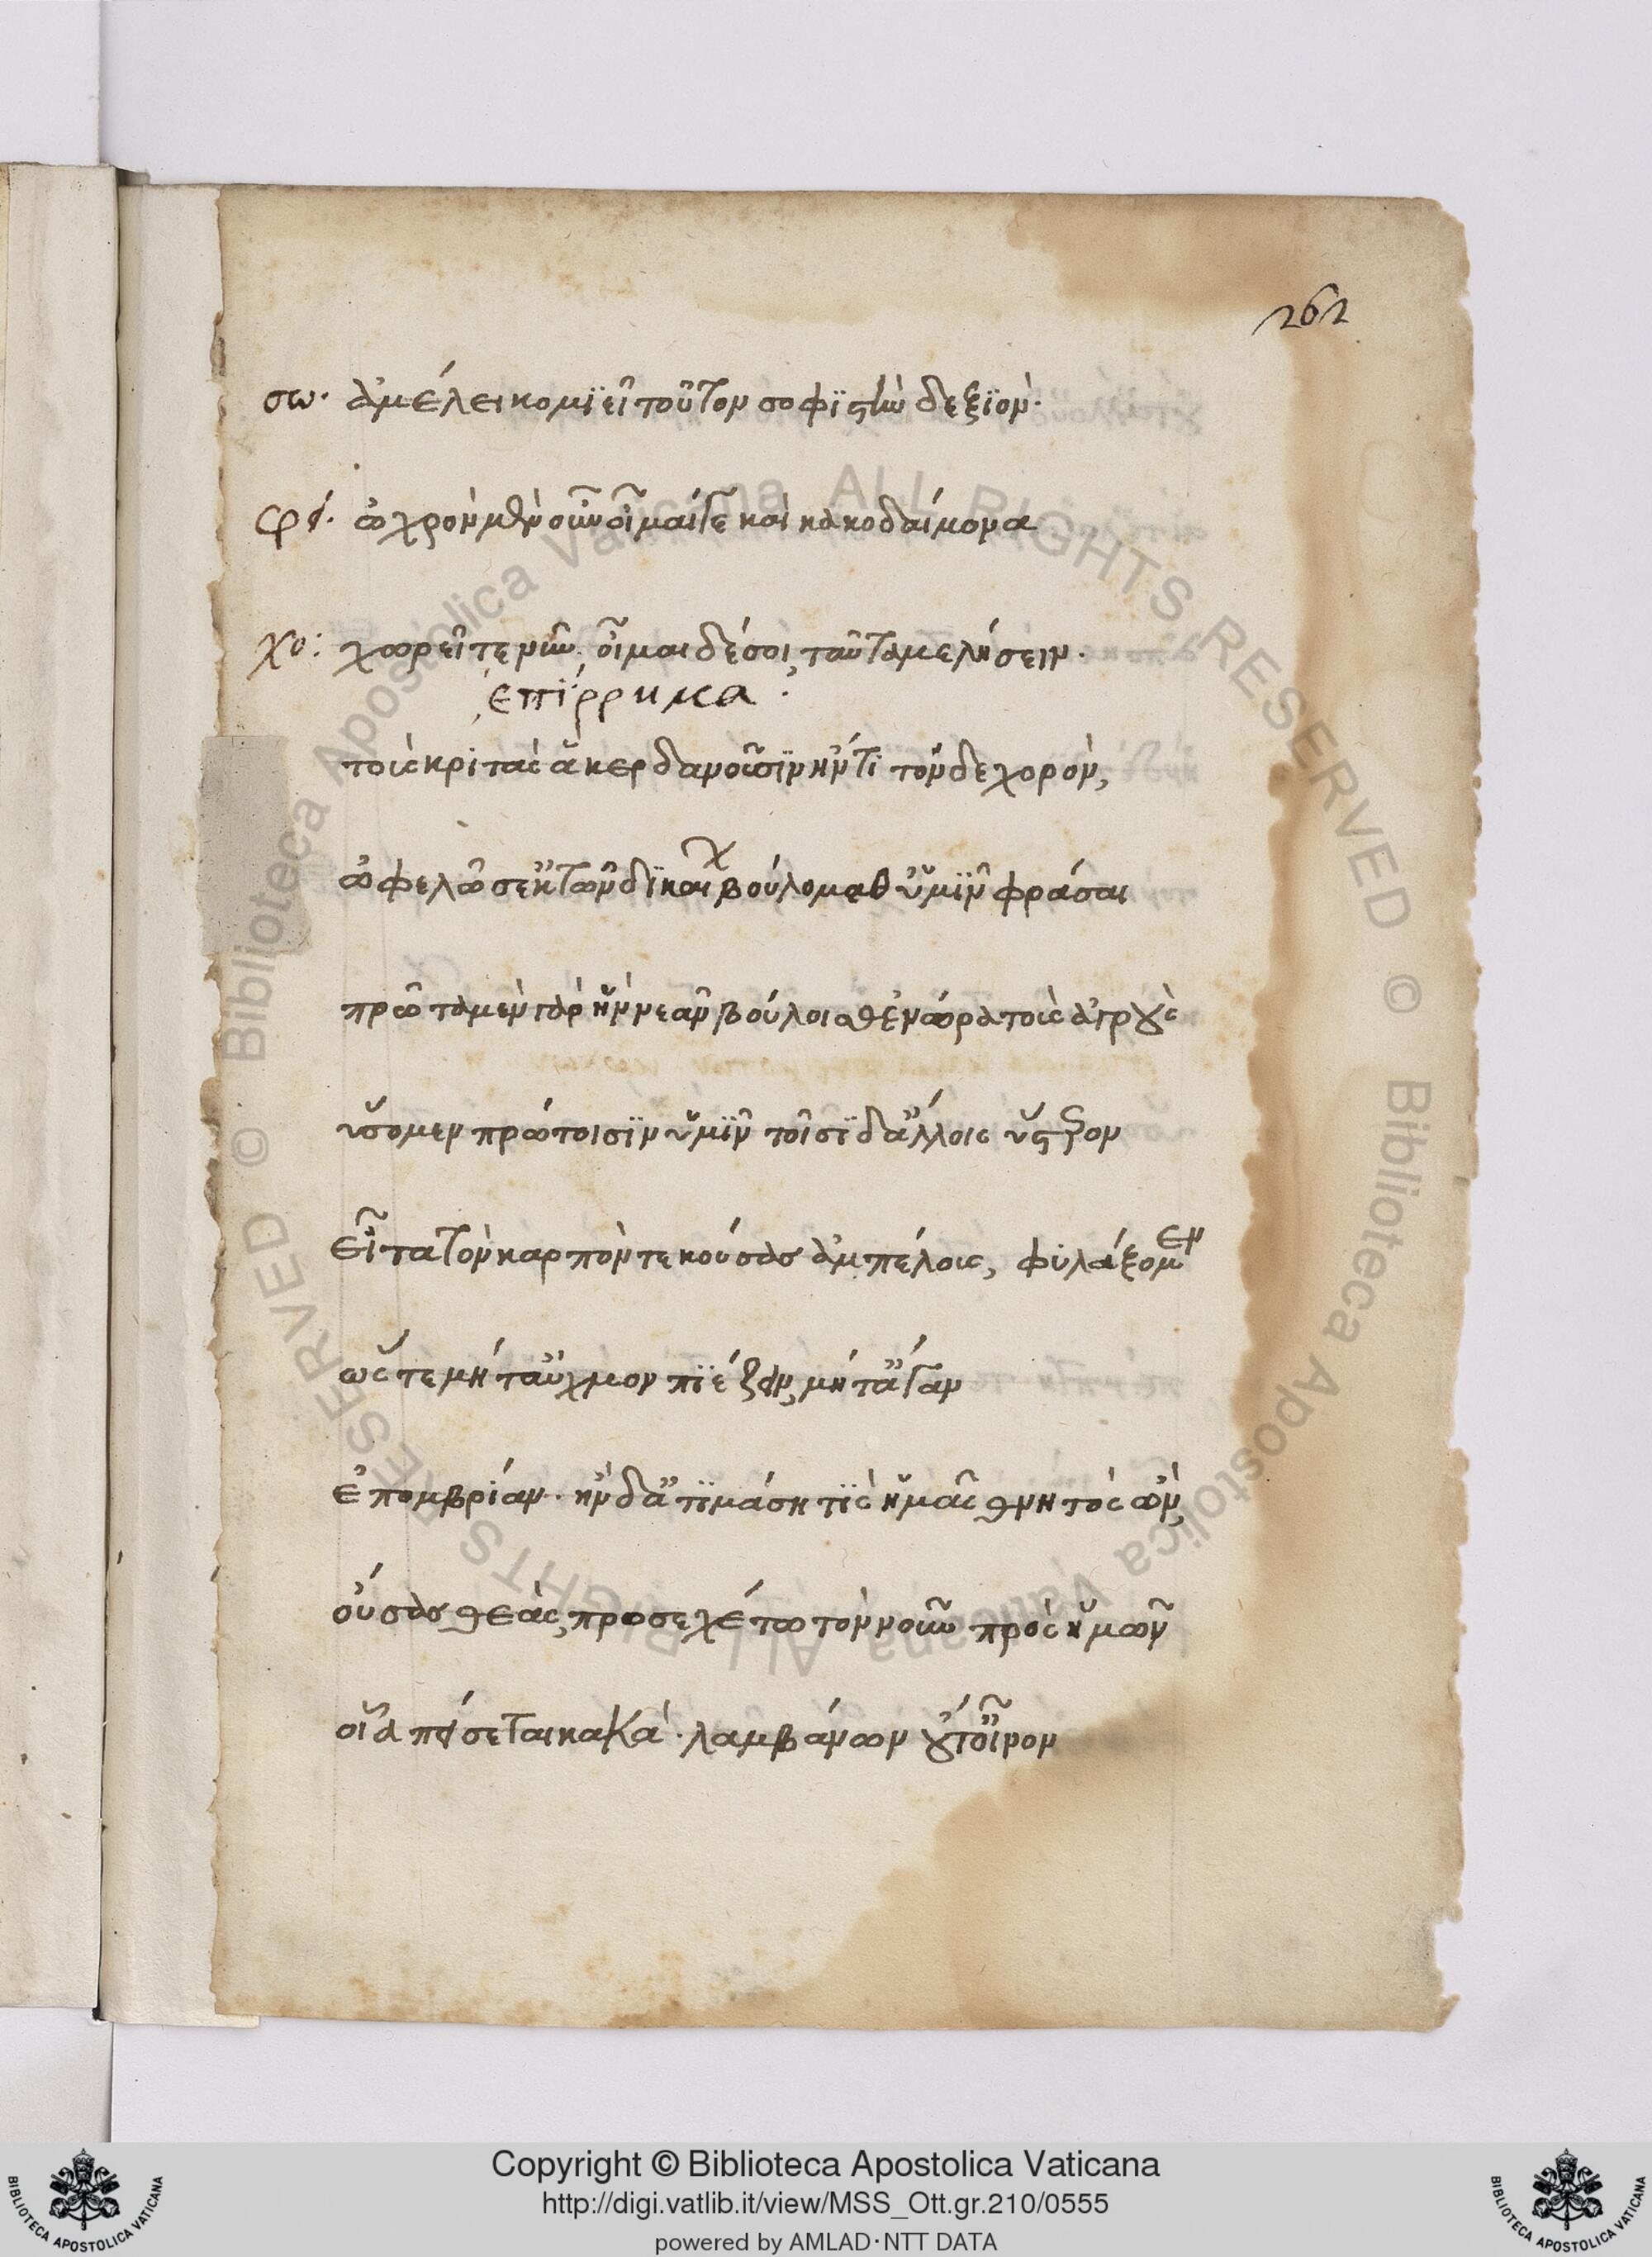 262
σω. ἀμέλει κομιεῖ τοῦτον σοφιστὴν δεξιόν.
φει. ὠχρὸν μὲν οὖν οἶμαί γε καὶ κακοδαίμονα
χο: χωρεῖτε νῦν. οἶμαι δέ σοι, ταῦτα μελήσειν.
ἐπίρρημα.
τοὺς κριτὰς ἃ κερδανοῦσιν ἤν τι τόνδε χορὸν,
ὠφελῶσ' ἐκ τῶν δικαί βουλόμεσθ' ὑμῖν φράσαι
πρῶτα μὲν γὰρ ἢν νεᾶν βούλοισθ' ἐν ὥρα τοὺς ἀγρούς
ὕσομεν πρώτοισιν ὑμῖν τοῖσι δ' ἄλλοις ὕστερον
εἶτα τὸν καρπὸν τεκούσας ἀμπέλους, φυλάξομεν
ὥστε μήτ' αὐχμὸν πιέζειν, μήτ' ἄγαν
ἐπομβρίαν. ἢν δ' ἀτιμάση τις ἡμᾶς θνητὸς ὢν,
οὔσας θεὰς, προσεχέτω τὸν νοῦν πρὸς ἡμῶν
οἷα πείσεται κακά. λαμβάνων οὔτ' οἶνον
Copyright © Biblioteca Apostolica Vaticana
http://digi.vatlib.it/view/MSS_Ott.gr.210/0555
powered by AMLAD·NTT DATA
BIBLIOTECA APOSTOLICA VATICANA
BIBLIOTECA APOSTOLICA VATICANA
Biblioteca Apostolica Vaticana ALL RIGHTS RESERVED ©
Biblioteca Apostolica Vaticana ALL RIGHTS RESERVED ©